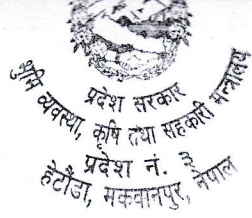 प्रदेश सरकार
भुमि व्यवस्था, कृषि तथा सहकारी मन्त्रालय
प्रदेश नं. ३
हेटौंडा, मकवानपुर, नेपाल